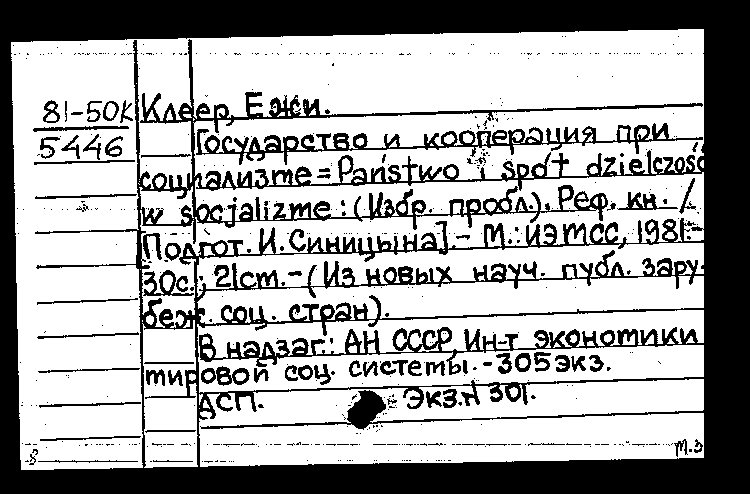 81-50К Клеер, Ежи.
5446 Государство и кооперация при
социализме = Państwo i społdzielczość
w socjalizme : (Избр. пробл.). Реф. кн. /
[Подгот. И. Синицына]. - М.: ИЭМСС, 1981. -
30с.; 21cm. - (Из новых науч. публ. зару-
беж. соц. стран).
В надзаг.: АН СССР, Ин-т экономики
мировой соц. системы. - 305 экз.
ДСП. Экз. N 301.
8 м.э